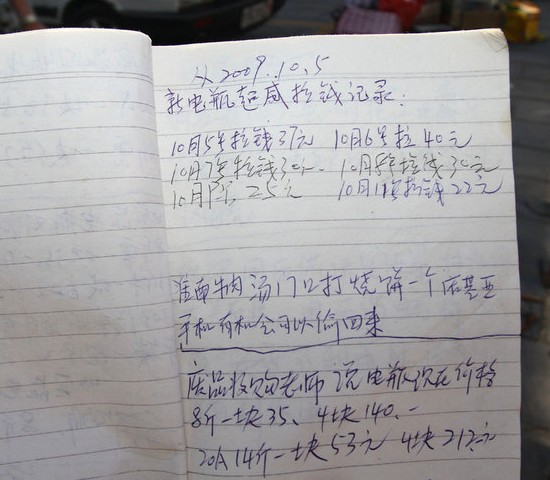 从2009.10.5
新电瓶超威拉钱记录:
10月5号拉钱37元 10月6号拉40元
10月7号拉钱30 10月8号拉钱30元
10月 25元 10月11号拉钱22元
淮南牛肉汤门口打烧饼一个诺基亚
手机有机会可以偷回来
废品收购老师说电瓶现在价格
8斤一块35、4块140.-
20A14斤一块53元 4块212元